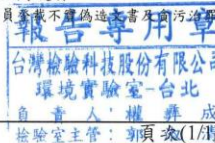 員登載不實偽造文書及貪污治罪
報告專用章
台灣檢驗科技股份有限公司
環境實驗室-台北
負責人：權彝成
檢驗室主管：郭
頁次(1/1